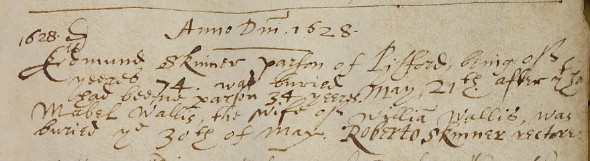 Anno Dm̄. 1628.
1628.
Edmund Skinner parson of Pitford, being of
yeeres 74. was buried May. 21th. after yt he
had beene parson 34 yeeres.
Mabel Wallis, the wife of William Wallis, was
buried ye 30th of May. Roberto Skinner rectore.